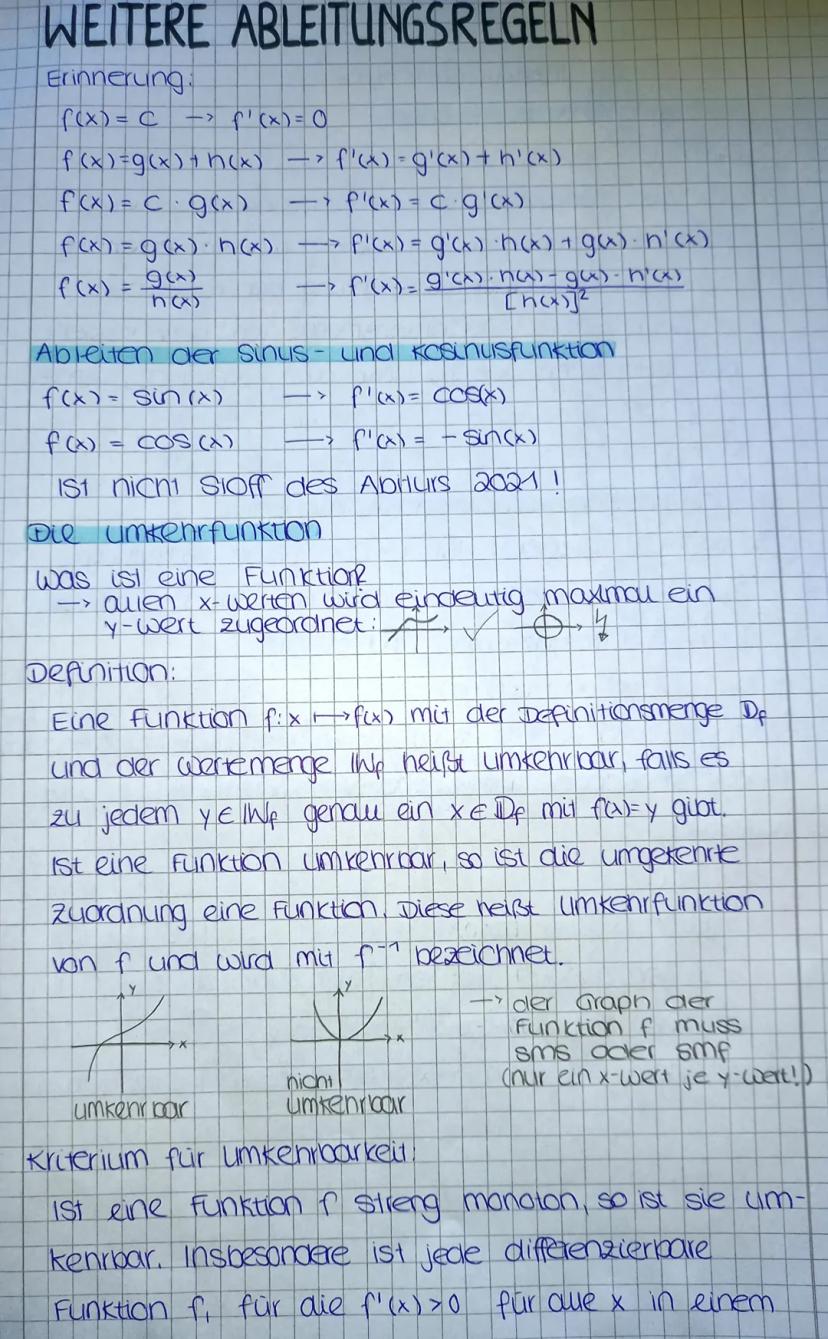 WEITERE ABLEITUNGSREGELN
Erinnerung:
f(x) = c → f'(x) = 0
f(x) = g(x) + h(x) → f'(x) = g'(x) + h'(x)
f(x) = c · g(x) → f'(x) = c · g'(x)
f(x) = g(x) · h(x) → f'(x) = g'(x) · h(x) + g(x) · h'(x)
f(x) = g(x)/h(x) → f'(x) = g'(x) · h(x) - g(x) · h'(x)/[h(x)]²
Ableiten der Sinus- und Kosinusfunktion
f(x) = sin(x) → f'(x) = cos(x)
f(x) = cos(x) → f'(x) = -sin(x)
Ist nicht Stoff des Abiturs 2021!
Die Umkehrfunktion
Was ist eine Funktion?
→ allen x-Werten wird eindeutig maximal ein
y-Wert zugeordnet:
Definition:
Eine Funktion f: x ↦ f(x) mit der Definitionsmenge Df
und der Wertemenge Wf heißt umkehrbar, falls es
zu jedem y ∈ Wf genau ein x ∈ Df mit f(x) = y gibt.
Ist eine Funktion umkehrbar, so ist die umgekehrte
Zuordnung eine Funktion. Diese heißt Umkehrfunktion
von f und wird mit f⁻¹ bezeichnet.
y
x
umkehrbar
y
x
nicht
umkehrbar
→ der Graph der
Funktion f muss
sms oder smf
(nur ein x-Wert je y-Wert!)
Kriterium für Umkehrbarkeit:
Ist eine Funktion f streng monoton, so ist sie um-
kehrbar. Insbesondere ist jede differenzierbare
Funktion f, für die f'(x) > 0 für alle x in einem